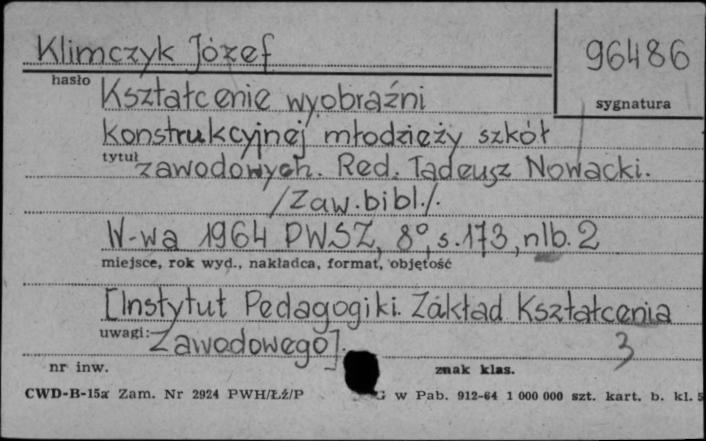 Klimczyk Józef
96486
hasło
sygnatura
Kształcenie wyobraźni
konstrukcyjnej młodzieży szkół
tytuł
zawodowych. Red. Tadeusz Nowacki.
/Zaw. bibl./.
W-wa 1964 PWSZ, 8°, s. 173, nlb. 2
miejsce, rok wyd., nakładca, format, objętość
[Instytut Pedagogiki. Zakład Kształcenia
uwagi:
Zawodowego].
3
nr inw.
znak klas.
CWD-B-15a Zam. Nr 2924 PWH/Łź/P
G w Pab. 912-64 1 000 000 szt. kart. b. kl. 5